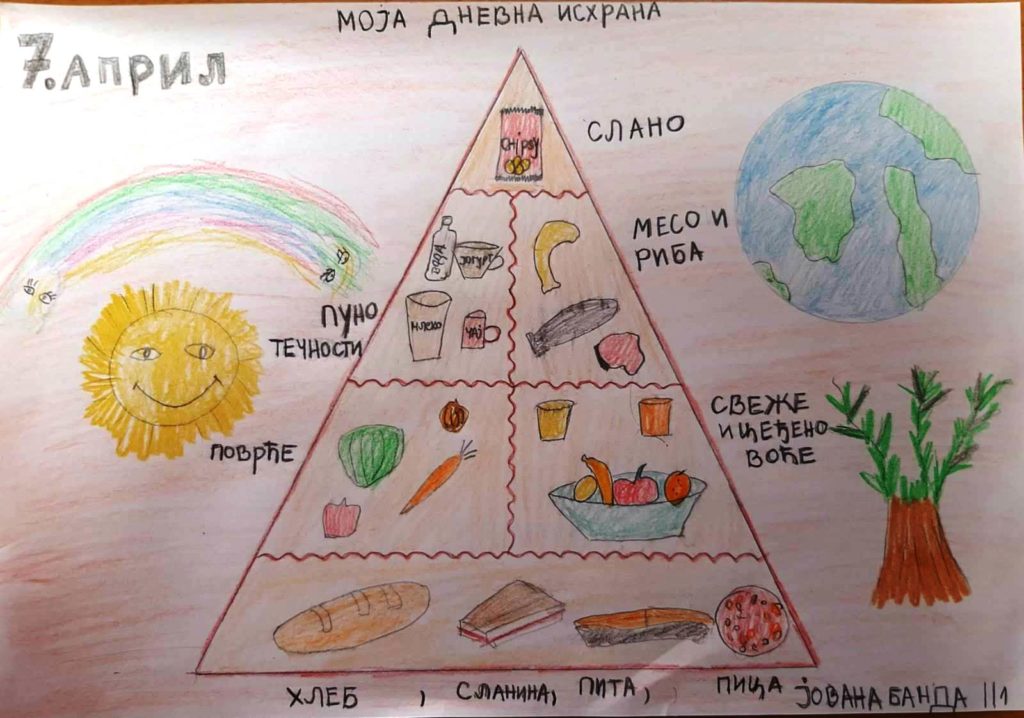 МОЈА ДНЕВНА ИСХРАНА
7. АПРИЛ
CHIPSY
СЛАНО
МЕСО И
РИБА
ПУНО
ТЕЧНОСТИ
МЛЕКО
ЧАЈ
СВЕЖЕ
И ЦЕЂЕНО
ВОЋЕ
ПОВРЋЕ
ХЛЕБ, СЛАНИНА, ПИТА, ПИЦА
ЈОВАНА БАНДА III1